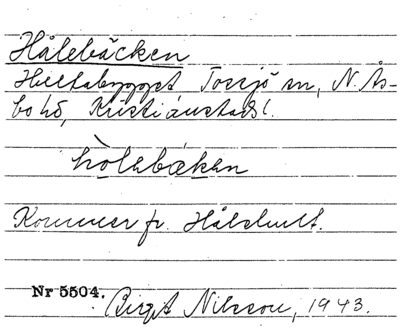 Hålebäcken
Hultabygget Tossjö sn, N. Ås-
bo hd, Kristianstads l.
hòlabæken
Kommer fr. Hålehult.
Nr 5504. Birgit Nilsson, 1943.